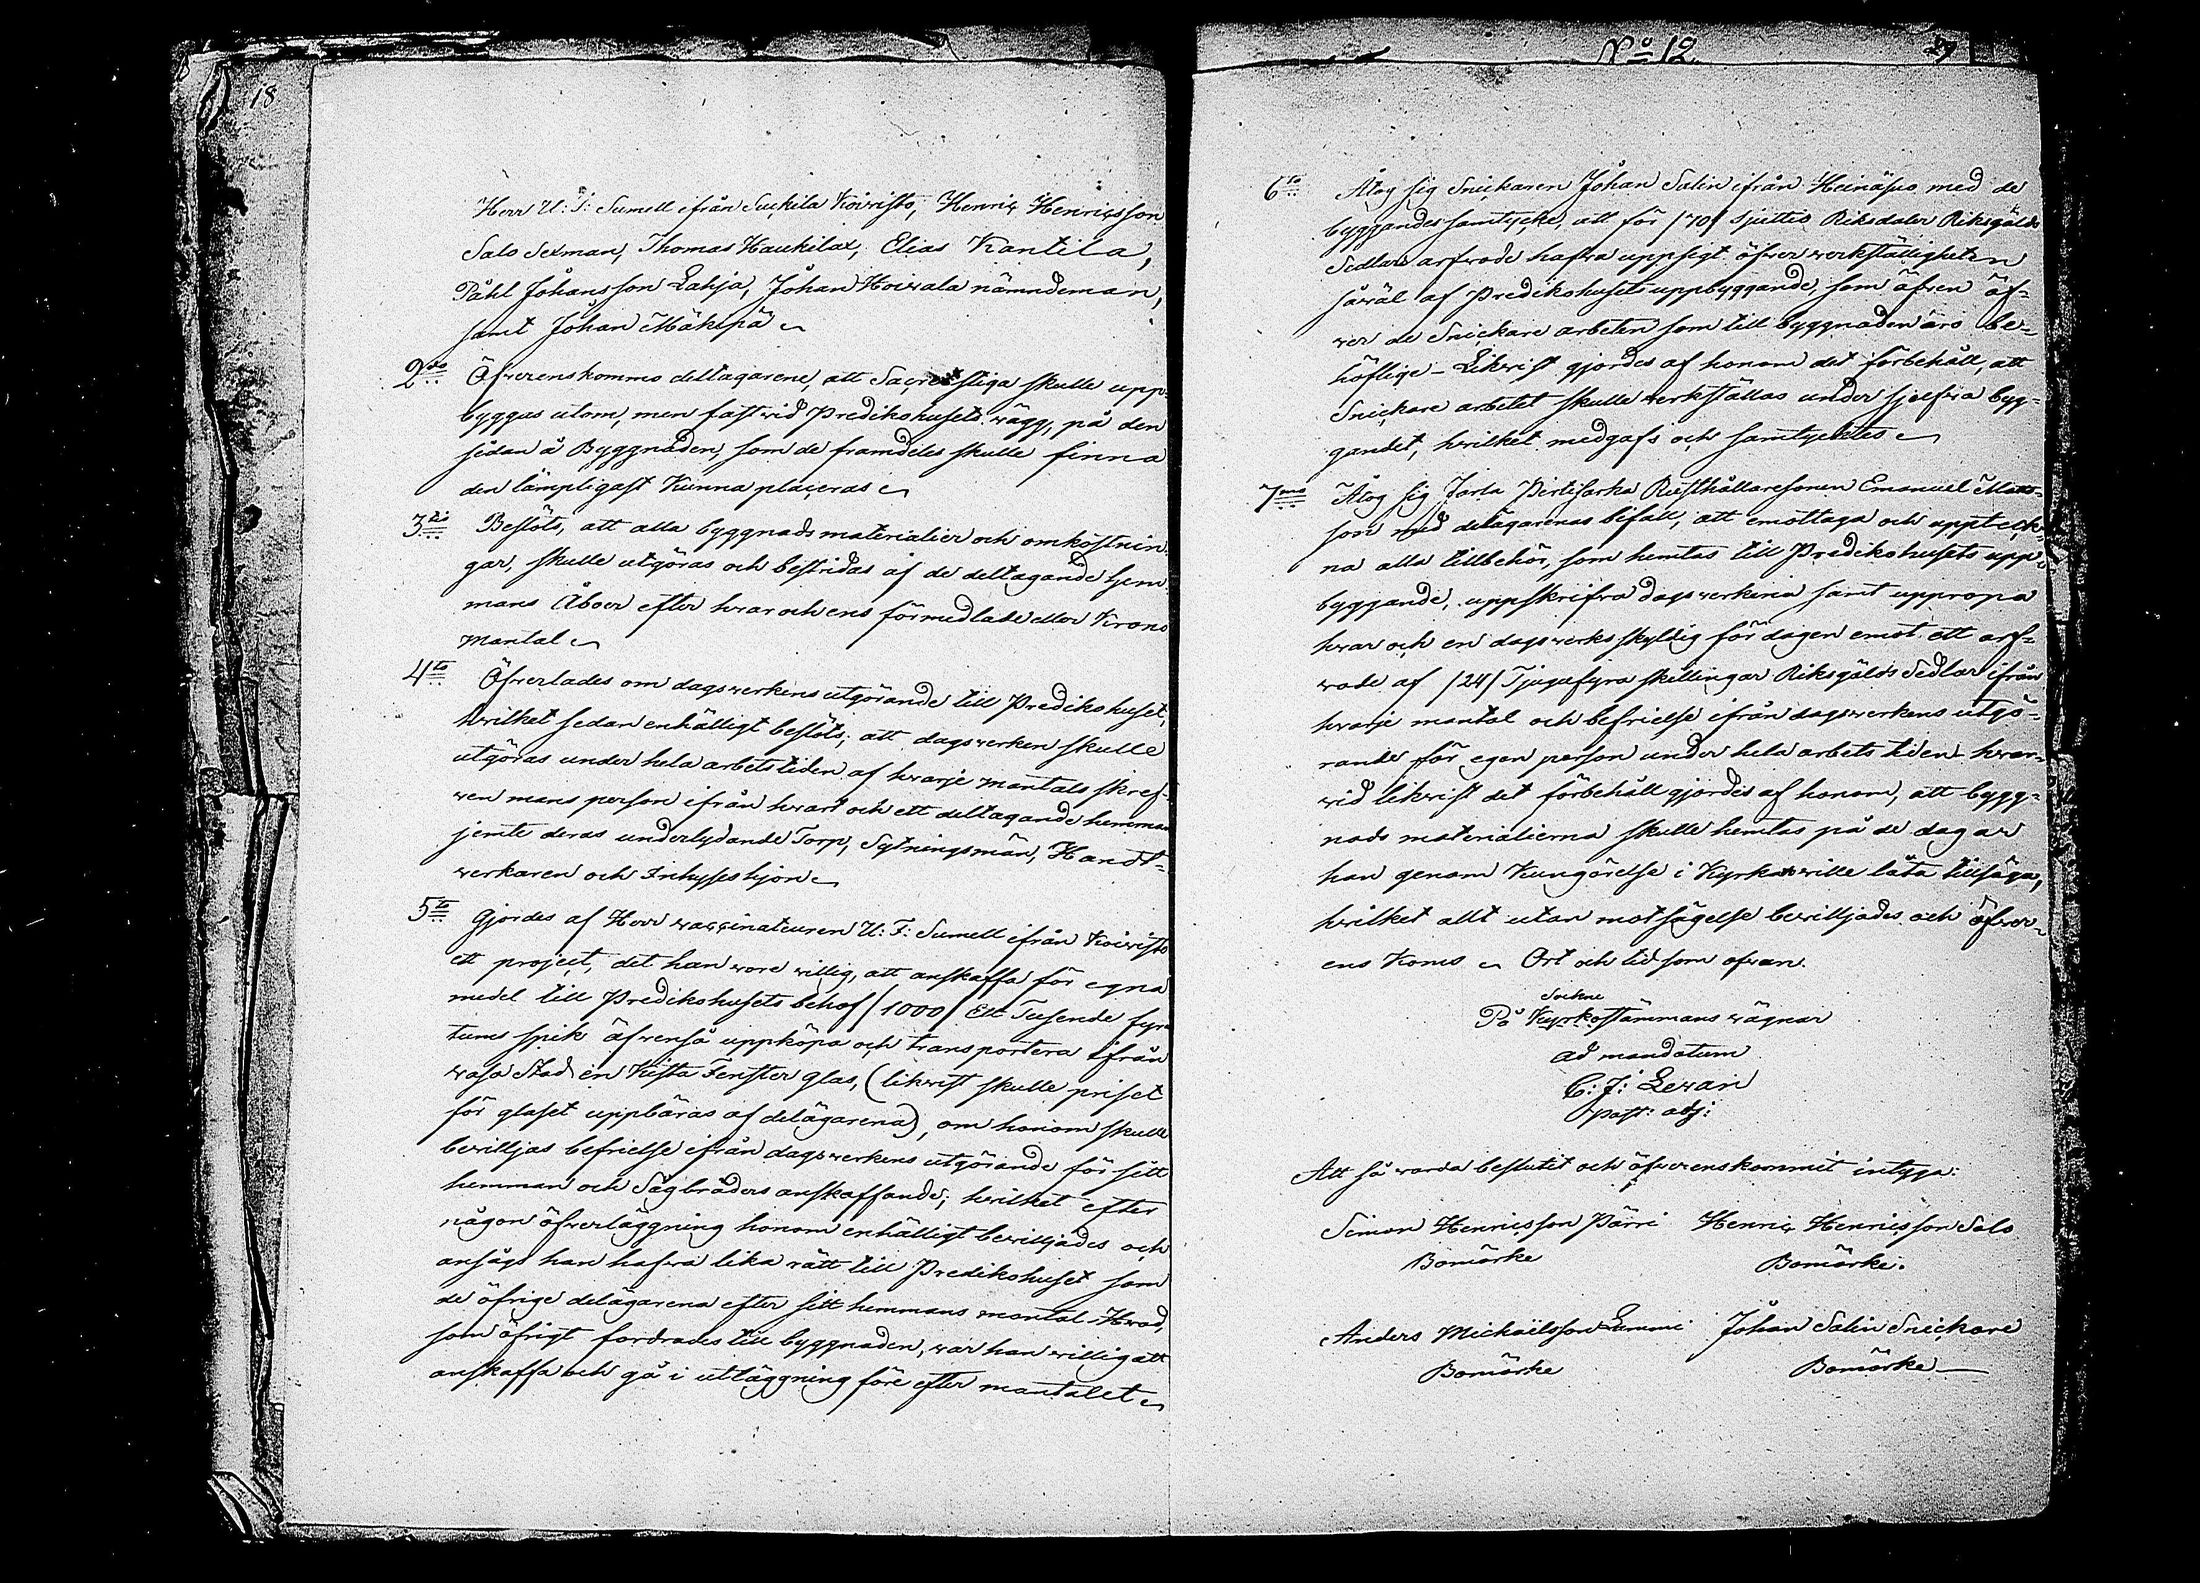 18
Herr U: F: Sumell ifrån Luckila Koivisto, Henric Henricsson
Salo Sexman, Thomas Haukilax, Elias Kantila,
Påhl Johansson Lahja, Johan Hoivala nämndeman,
samt Johan Mäkipä
2do Öfverenskommo deltagarene, att Sacrestiga skulle upp-
byggas utom, men fastvid Predikohusets vägg, på den
sidan å Byggnaden, som de framdeles skulle finna
den lämpligast kunna placeras
3tio Beslöts, att alla byggnads materialier och omkostnin-
gar, skulle utgöras och bestridas af de deltagande hem-
mans Åboer efter hvar och ens förmedlade eller Krono
mantal
4to Öfverlades om dagsverkens utgörande till Predikohuset,
hvilket sedan enhälligt beslöts, att dagsverken skulle
utgöras under hela arbetstiden af hvarje mantals skref-
ven mans person ifrån hvart och ett deltagande hemman
jemte deras underlydande Torp, Sytningsmän, Handt-
verkaren och Inhysseshjon
5to Gjordes af Herr vaccinateuren U: F: Sumell ifrån Koivisto
ett project, det han vore villig, att anskaffa för egna
medel till Predikohusets behof /1000/ Ett Tusende fyra
tums spik äfvenså uppköpa och transportera ifrån
Vasa Stad en Kista Fenster glas, (likvist skulle priset
för glaset uppbäras af delägarena), om honom skulle
bevilljas befrielse ifrån dagsverkens utgörande för sitt
hemman och Sågbräders anskaffande; hvilket efter
någon öfverläggning honom enhälligt bevilljades och
ansågs han hafva lika rätt till Predikohuset som
de öfrige delägarena efter sitt hemmans mantal. Hvad,
som öfrigt fordrades till byggnaden, var han villig att
anskaffa och gå i utläggning före efter mantalet
No 12. 29
6to Åtog sig Snickaren Johan Salin ifrån Heinäsuo med de
byggandes samtycke, att för /70/ sjuttio Riksdaler Riksgälds
Sedlars arfvode hafva uppsigt öfver verkställigheten
såväl af Predikohusets uppbyggande, som äfven öf-
ver de Snickare arbeten som till byggnaden äro be-
höflige - Likvist gjordes af honom det förbehåll, att
Snickare arbetet skulle verkställas under sjelfva byg-
gandet, hvilket medgafs och samtycktes
7mo Åtog sig Jorla Pirtisarka Rusthållaresonen Emanuel Matts-
son med delägarenas bifall, att emottaga och uppteck-
na alla tillbehör, som hemtas till Predikohusets upp-
byggande, uppskrifva dagsverkena samt uppropa
hvar och en dagsverksskyldig för dagen emot ett arf-
vode af /24/ Tjugufyra skillingar Riksgälds Sedlar ifrån
hvarje mantal och befrielse ifrån dagsverkens utgö-
rande för egen person under hela arbets tiden hvar-
vid likvist det förbehåll gjordes af honom, att bygg-
nads materialierna skulle hemtas på de dagar
han genom Kungörelse i Kyrkan ville låta tillsäga,
hvilket allt utan motsägelse bevilljades och öfver-
ens koms Ort och tid som ofvan.
Sockne
På Kyrkostämmans vägnar
ad mandatum
C: J: Levan
past: adj:
Att så varda beslutit och öfverenskommit intyga:
Simon Henricsson Pärri Henric Henricsson Salo
Bomärke Bomärke.
Anders Michaëlsson Lammi Johan Salin Snickare
Bomärke Bomärke